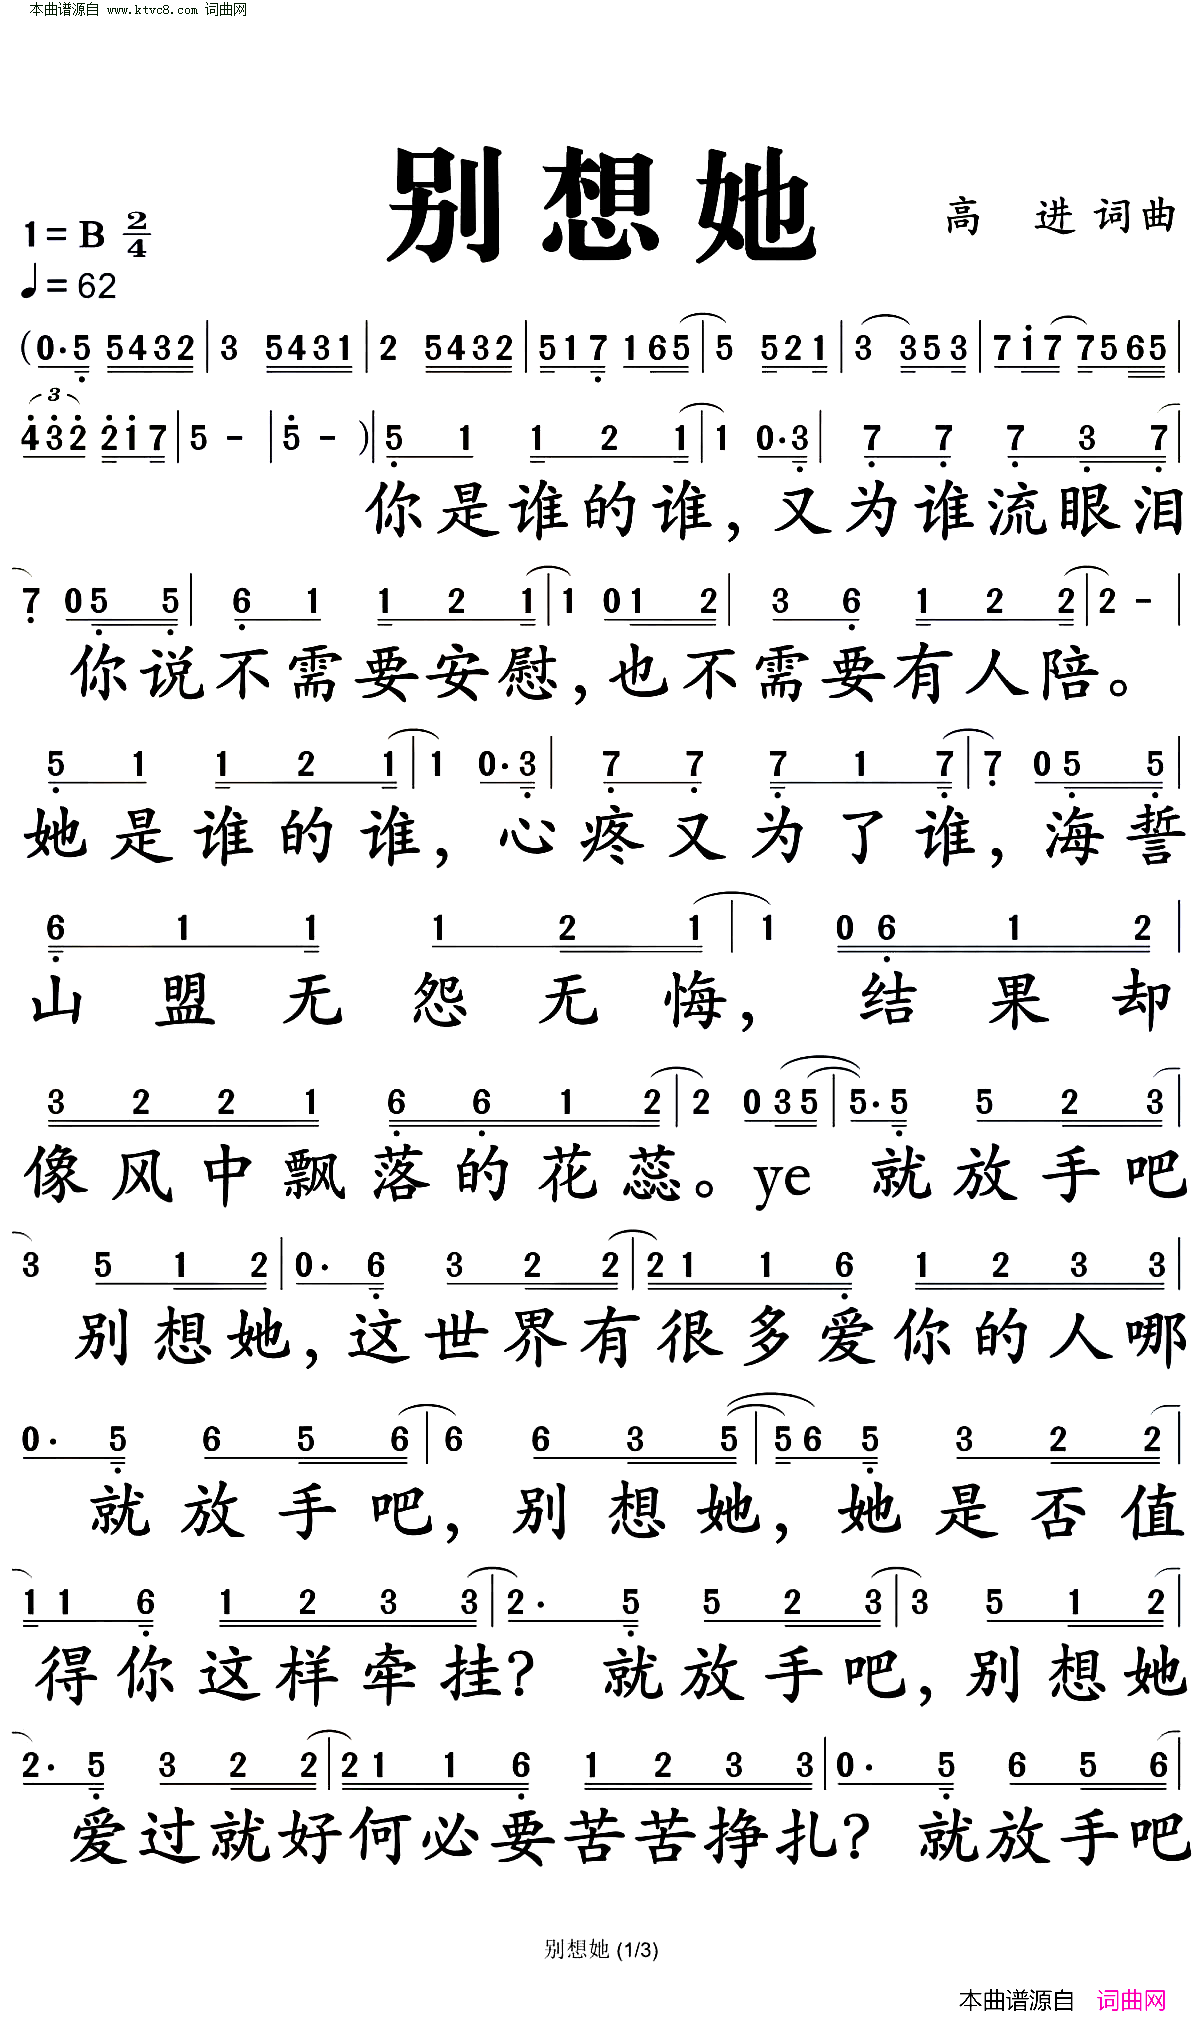 本曲谱源自 www.ktvc8.com 词曲网
别想她
高 进 词曲
1=B 2/4
♩=62
(0·5 5432|3 5431|2 5432|517 165|5 521|3 353|717 7565|
3
432 217|5 -|5 -)|5 1 1 2 1|1 0·3|7 7 7 3 7|
你是谁的谁,又为谁流眼泪
7 05 5|6 1 1 2 1|1 01 2|3 6 1 2 2|2 -|
你说不需要安慰,也不需要有人陪。
5 1 1 2 1|1 0·3|7 7 7 1 7|7 05 5|
她是谁的谁,心疼又为了谁,海誓
6 1 1 1 2 1|1 06 1 2|
山盟无怨无悔,结果却
3 2 2 1 6 6 1 2|2 035|5·5 5 2 3|
像风中飘落的花蕊。ye 就放手吧
3 5 1 2|0·6 3 2 2|21 1 6 1 2 3 3|
别想她,这世界有很多爱你的人哪
0·5 6 5 6|6 6 3 5|56 5 3 2 2|
就放手吧,别想她,她是否值
11 6 1 2 3 3|2·5 5 2 3|3 5 1 2|
得你这样牵挂? 就放手吧,别想她
2·5 3 2 2|21 1 6 1 2 3 3|0·5 6 5 6|
爱过就好何必要苦苦挣扎? 就放手吧
别想她 (1/3)
本曲谱源自 词曲网